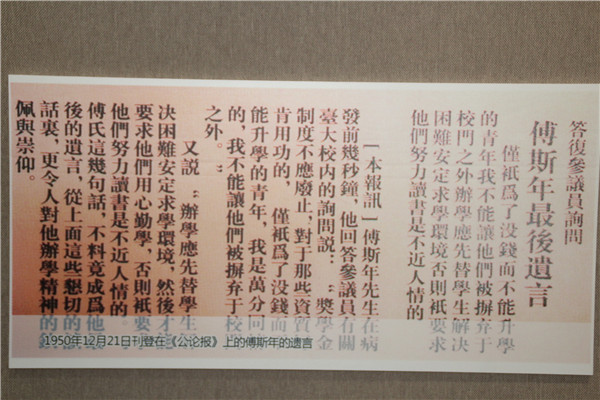 答復參議員詢問
傅斯年最後遺言
僅衹爲了没錢而不能升學
的青年我不能讓他們被摒弃于
校門之外辦學應先替學生解决
困難安定求學環境否則衹要求
他們努力讀書是不近人情的
[本報訊]傅斯年先生在病
發前幾秒鐘,他回答參議員有關
臺大校内的詢問説:“獎學金
制度不應廢止,對于那些資質
肯用功的,僅衹爲了没錢而
能升學的青年,我是萬分同
的,我不能讓他們被摒弃于校
之外。”
又説“辦學應先替學生
决困難安定求學環境,然後才
要求他們用心勤學,否則衹要
他們努力讀書是不近人情的。
傅氏這幾句話,不料竟成爲他
後的遺言,從上面這些懇切的
話裏,更令人對他辦學精神的
佩與崇仰。
1950年12月21日刊登在《公论报》上的傅斯年的遗言